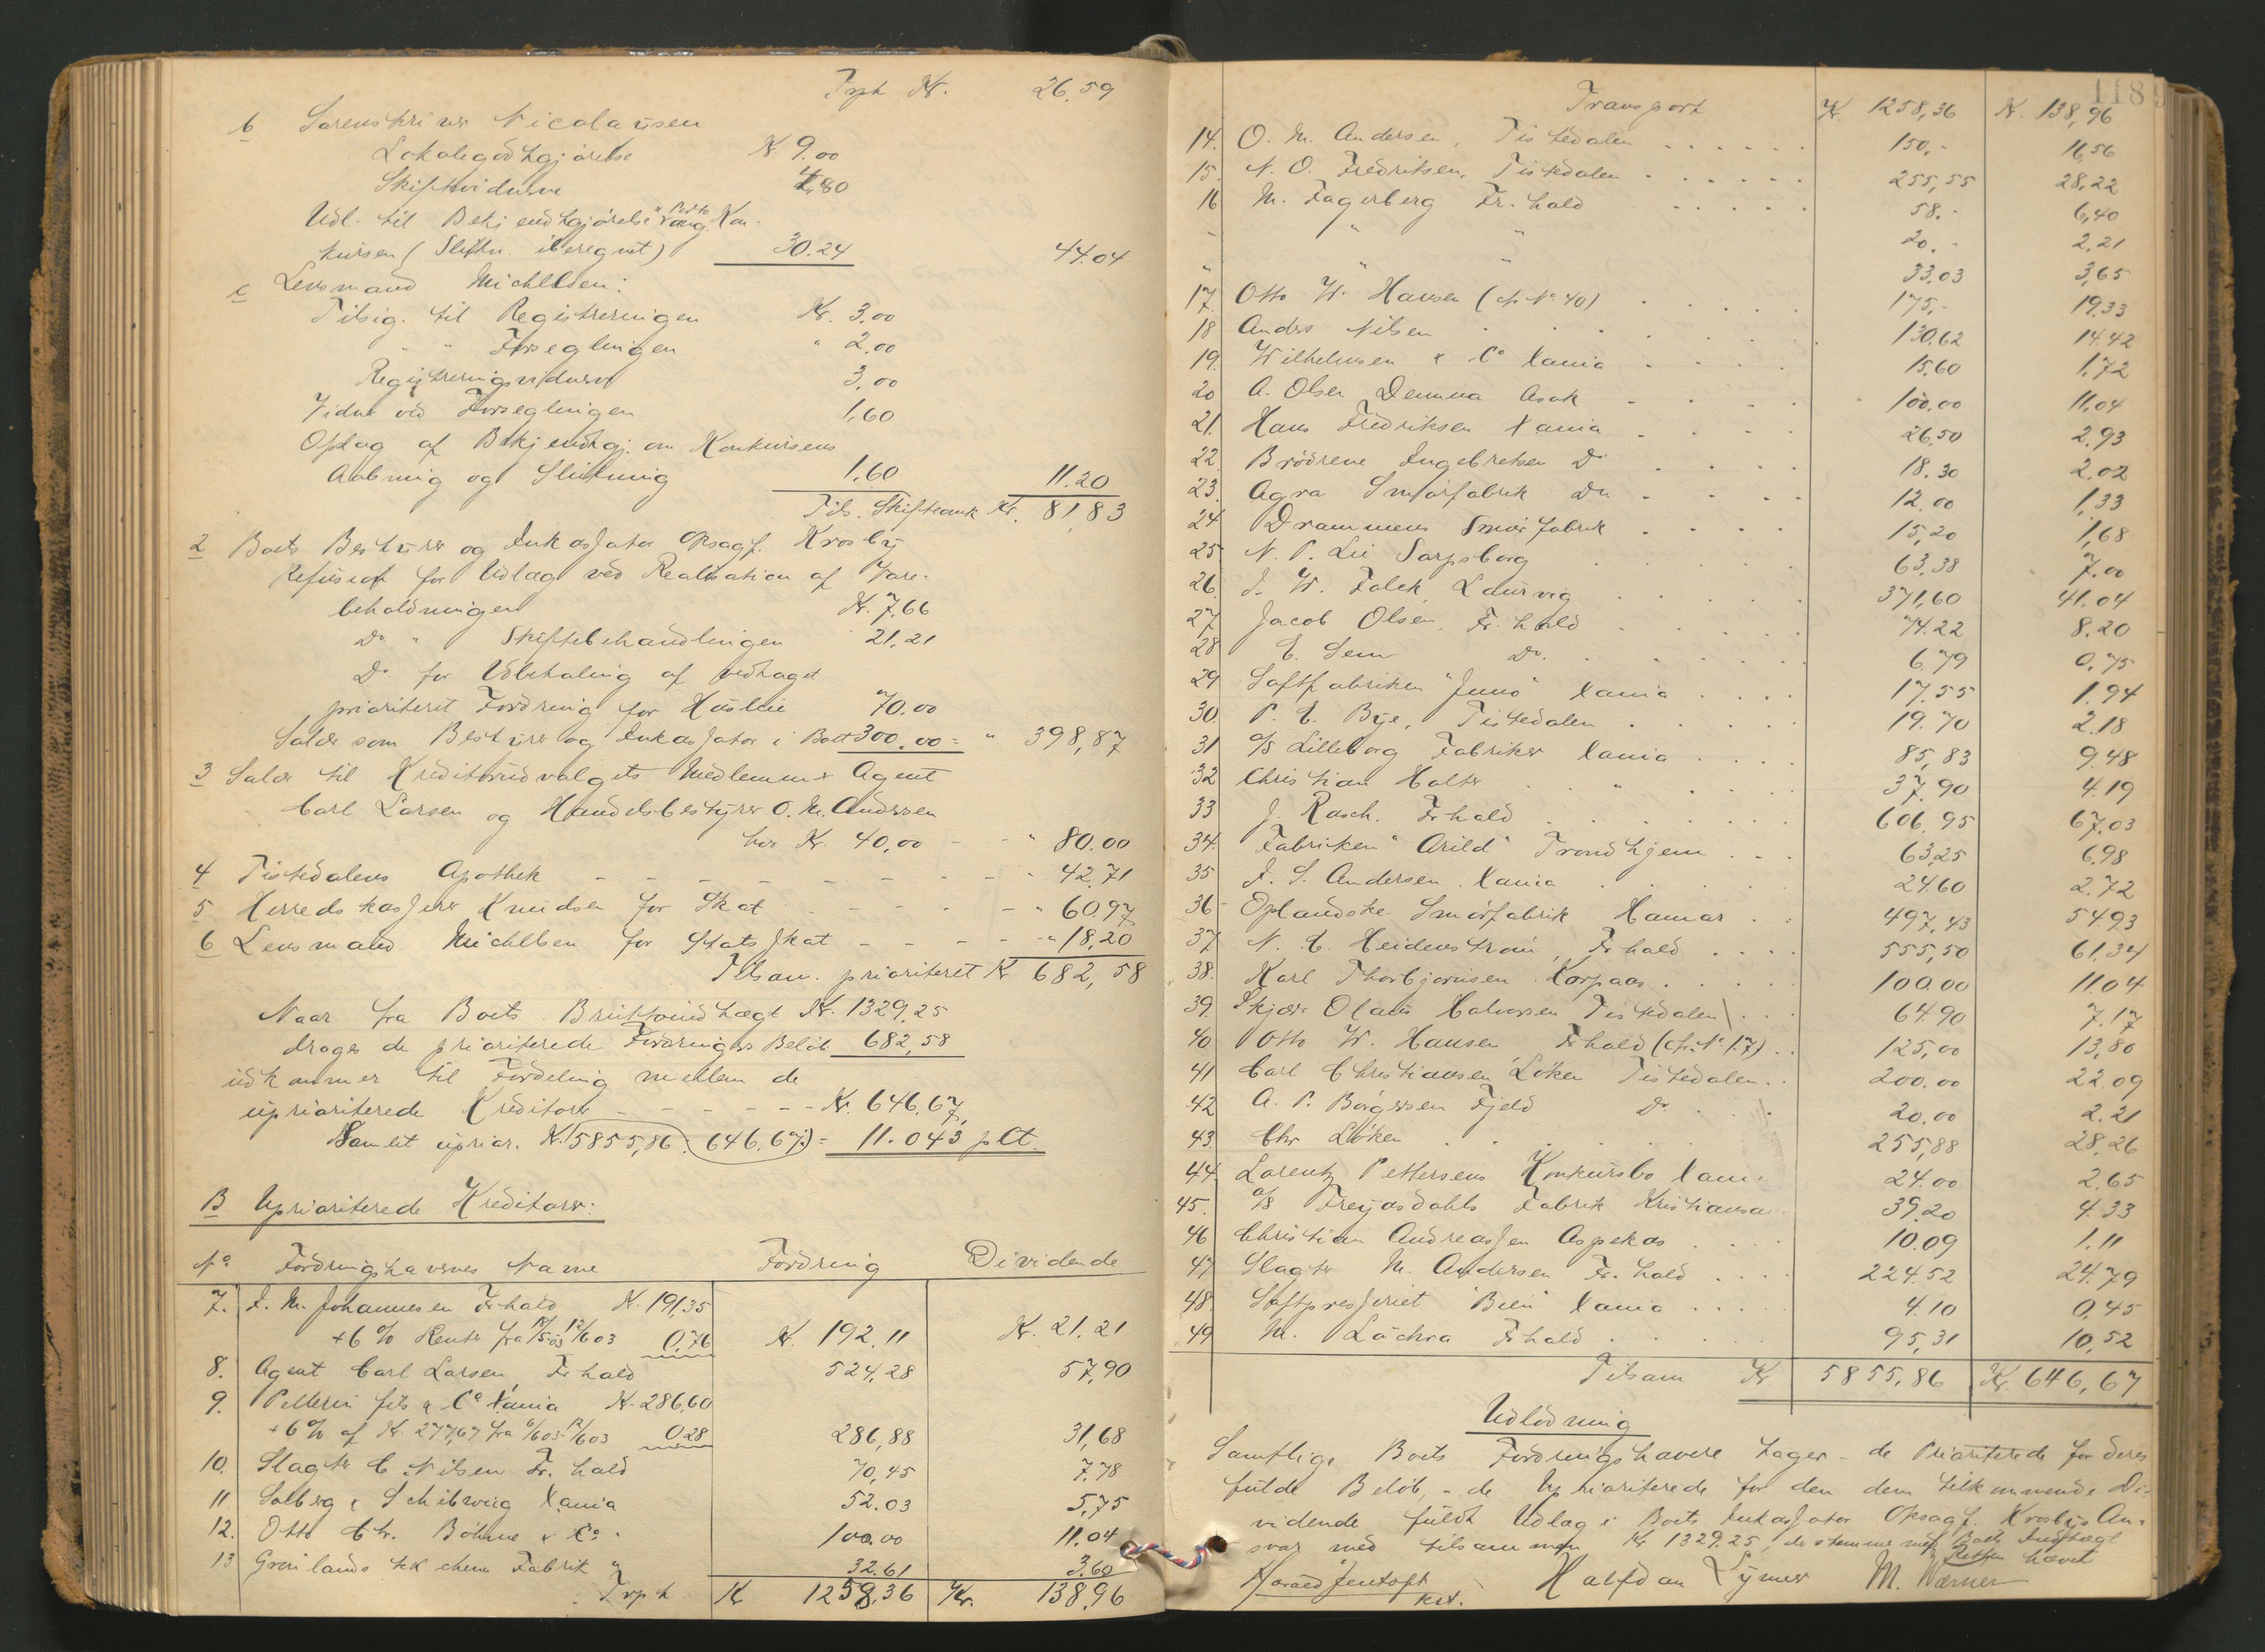 Trpt Kr. 26.59
b Sorenskriver Nicolaysen
Lokalegodtgjörelse Kr 9.00
Skiftevidnerne 4,80
Udl. til Bekjendtgjörelse " Porto ang. Kon-
kursen (Slutn. iberegnet) 30.24 44.04
c Lensmand Michelsen:
Tilsig. til Registreringen Kr. 3.00
" " Forseglingen " 2.00
Registreringsvidnerne 3.00
Vidne ved Forseglingen 1,60
Opslag af Bekjendtgj. om Konkursens
Aabning og Slutning 1.60 11.20
Tils. Skifteomk Kr. 81,83
2 Boets Bestyrer og Inkassator Opsagf. Krosby
Refusion for Udlæg ved Realisation af Vare-
beholdningen Kr. 7,66
Do " Skiftebehandlingen 21.21
Do for Udbetaling af vedtaget
prioriteret Fordring for Husleie 70.00
Salær som Bestyrer og Inkassator i Boet 300.00 = " 398,87
3 Salær til Kreditorudvalgets Medlemmer Agent
Carl Larsen og Handelsbestyrer O. M. Andersen
hver Kr. 40,00 - - " 80.00
4 Tistedalens Apothek - - - - - - - - " 42.71
5 Herredskasserer Knudsen for Skat - - - - - " 60.97
6 Lensmand Michelsen for Statsskat - - - - - " 18,20
Tilsam. prioriteret Kr 682,58
Naar fra Boets Bruttoindtægt Kr. 1329.25
drages de prioriterede Fordringers Beløb 682,58
udkommer til Fordeling mellem de
uprioriterede Kreditorer - - - - - - Kr. 646.67,
Samlet uprior. Kr. (5855,86 : 646.67) = 11.043 pCt.
B Uprioriterede Kreditorer:
No Fordringshavernes Navne Fordring Dividende
7. J. M. Johannesen Frhald Kr. 191,35
+ 6 % Renter fra 19/5 03 - 12/6 03 0,76 Kr. 192.11 Kr. 21.21
8. Agent Carl Larsen, Frhald 524,28 57,90
9. Pellerin fils & Co Xania Kr. 286,60
+ 6% af Kr. 277,67 fra 6/6 03 - 12/6 03 0.28 286,88 31,68
10. Slagter C. Nilsen Fr.hald 70,45 7.78
11 Solberg & Schibrong Xania 52.03 5,75
12. Otto Chr. Böhme & Co " 100.00 11.04
13 Grönlands tekchem Fabrik " 32.61 3.60
Trpt Kr 1258.36 Kr. 138.96
118
Transport Kr. 1258,36 Kr. 138,96
14. O. M. Andersen, Tistedalen 150,- 16,56
15. N. O. Fredriksen, Tistedalen 255,55 28,22
16 M. Fagerberg Fr.hald 58.- 6,40
" " " 20.- 2.21
" " " 33.03 3,65
17. Otto W. Hansen (cfr. No 40) 175,- 19.33
18 Anders Nilsen 130.62 14.42
19. Wilhelmsen & Co Xania 15.60 1.72
20 A. Olsen Demma Asak 100.00 11.04
21. Hans Fredriksen Xania 26.50 2.93
22. Brödrene Ingebretsen Do 18.30 2.02
23. Agra Smörfabrik Do 12.00 1,33
24 Drammens Smörfabrik 15,20 1,68
25 N. P. Lie Sarpsborg 63.38 7.00
26. J. W. Falck, Laurvig 371,60 41.04
27 Jacob Olsen, Fr.hald 74.22 8.20
28 E. Sem Do. 6.79 0,75
29 Saftfabriken "Juno" Xania 17.55 1.94
30. P. E. Bye, Tistedalen 19.70 2.18
31 A/S Lilleborg Fabriker Xania 85,83 9.48
32 Christian Holter " 37.90 4.19
33 J. Rasch. Frhald 606.95 67.03
34. Fabriken "Arild" Trondhjem 63,25 6.98
35 J. S. Andersen. Xania 24.60 2.72
36 Oplandske Smörfabrik Hamar 497,43 54.93
37 N. C. Heidenström, Frhald 555,50 61.34
38. Karl Thorbjörnsen Korpaas 100.00 11.04
39. Skjær Olaus Halvorsen Tistedalen 64.90 7.17
40 Otto W. Hansen Frhald (cfr. No 17) 125,00 13,80
41 Carl Christiansen Löken Tistedalen 200.00 22.09
42 A. P. Börgersen Fjeld Do 20.00 2.21
43. Chr Löken 255,88 28.26
44 Lorentz Pettersens Konkursbo Xania 24.00 2.65
45. A/S Freyasdahls Fabrik Kristiansa 39.20 4.33
46 Christian Andreassen Aspekas 10.09 1.11
47 Slagter M. Andersen Fr.hald 224.52 24.79
48 Saftpresseriet "Bien" Xania 4.10 0,45
49 M. Frhald 95,31 10,52
Tilsam Kr 5855,86 Kr. 646,67
Udlodning
Samtlige Boets Fordringshavere tager - de Prioriterede for deres
fulde Beløb, - de Uprioriterede for den dem tilkommende Di-
vidende fuldt Udlæg i Boets Inkassator Opsagf. Krosbys An-
svar med tilsammen Kr 1329.25, der stemmer med Boets Indtægt
Retten hævet
Harald Jentoft Halfdan Lymer M. Wærner
kst.